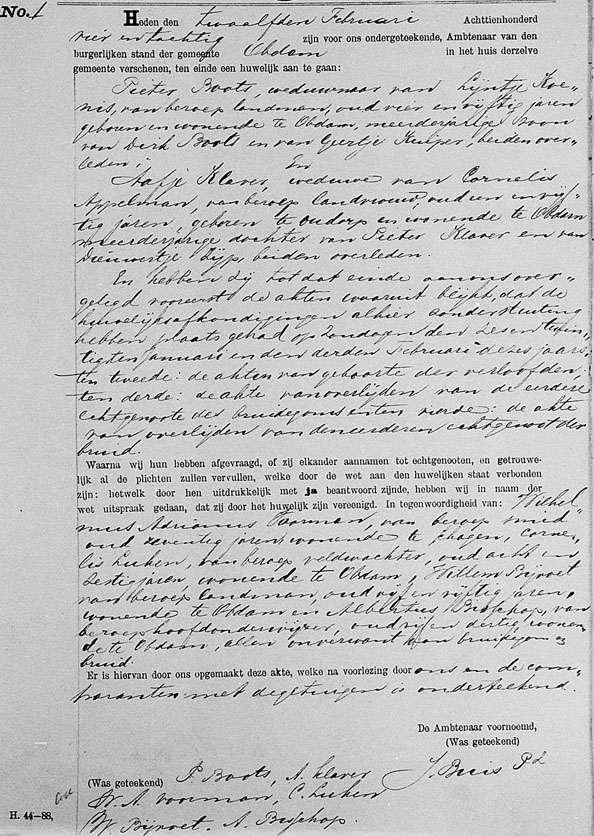 No. 1
Heden den twaalfden Februari Achttienhonderd
vier en tachtig zijn voor ons ondergeteekende, Ambtenaar van den
burgerlijken stand der gemeente Obdam in het huis derzelve
gemeente verschenen, ten einde een huwelijk aan te gaan:
Pieter Boots, weduwnaar van Lijntje Koe„
nis, van beroep landman, oud vier en vijftig jaren
geboren en wonende te Obdam, meerderjarige zoon
van Dirk Boots en van Geertje Kuiper, beiden over„
leden;
En
Aafje Klaver, weduwe van Cornelis
Appelman, van beroep landvrouw, oud een en vijf„
tig jaren, geboren te Oudorp en wonende te Obdam
meerderjarige dochter van Pieter Klaver en van
Dieuwertje Zijp, beiden overleden.
En hebben zij tot dat einde aan ons over„
gelegd vooreerst de akten waaruit blijkt, dat de
huwelijksafkondigingen alhier zonder stuiting
hebben plaats gehad op Zondagen den zeven en twin„
tigsten januari en den derden Februari dezes jaars
ten tweede: de akten van geboorte der verloofden;
ten derde: de akte van overlijden van de eerdere
echtgenoote des bruidegoms en ten vierde: de akte
van overlijden van den eerderen echtgenoot der
bruid.
Waarna wij hun hebben afgevraagd, of zij elkander aannamen tot echtgenooten, en getrouwe-
lijk al de plichten zullen vervullen, welke door de wet aan den huwelijken staat verbonden
zijn: hetwelk door hen uitdrukkelijk met ja beantwoord zijnde, hebben wij in naam der
wet uitspraak gedaan, dat zij door het huwelijk zijn vereenigd. In tegenwoordigheid van: Wilhel„
mus Adrianus Voorman, van beroep smid
oud zeventig jaren, wonende te Schagen, Corne„
lis Luken, van beroep veldwachter, oud acht en
zestig jaren, wonende te Obdam, Willem Bijvoet
van beroep landman, oud vijf en vijftig jaren,
wonende te Obdam en Albertus Bisschop, van
beroep hoofdonderwijzer, oud vijf en dertig, wonen„
de te Obdam, allen onverwant aan bruidegom en
bruid.
Er is hiervan door ons opgemaakt deze akte, welke na voorlezing door ons en de com„
paranten met de getuigen is onderteekend.
De Ambtenaar voornoemd,
(Was geteekend)
J. Buis Pz
(Was geteekend) P. Boots, A. Klaver
W. A. Voorman, C. Luken
W. Bijvoet. A. Bisschop.
H. 44—88.